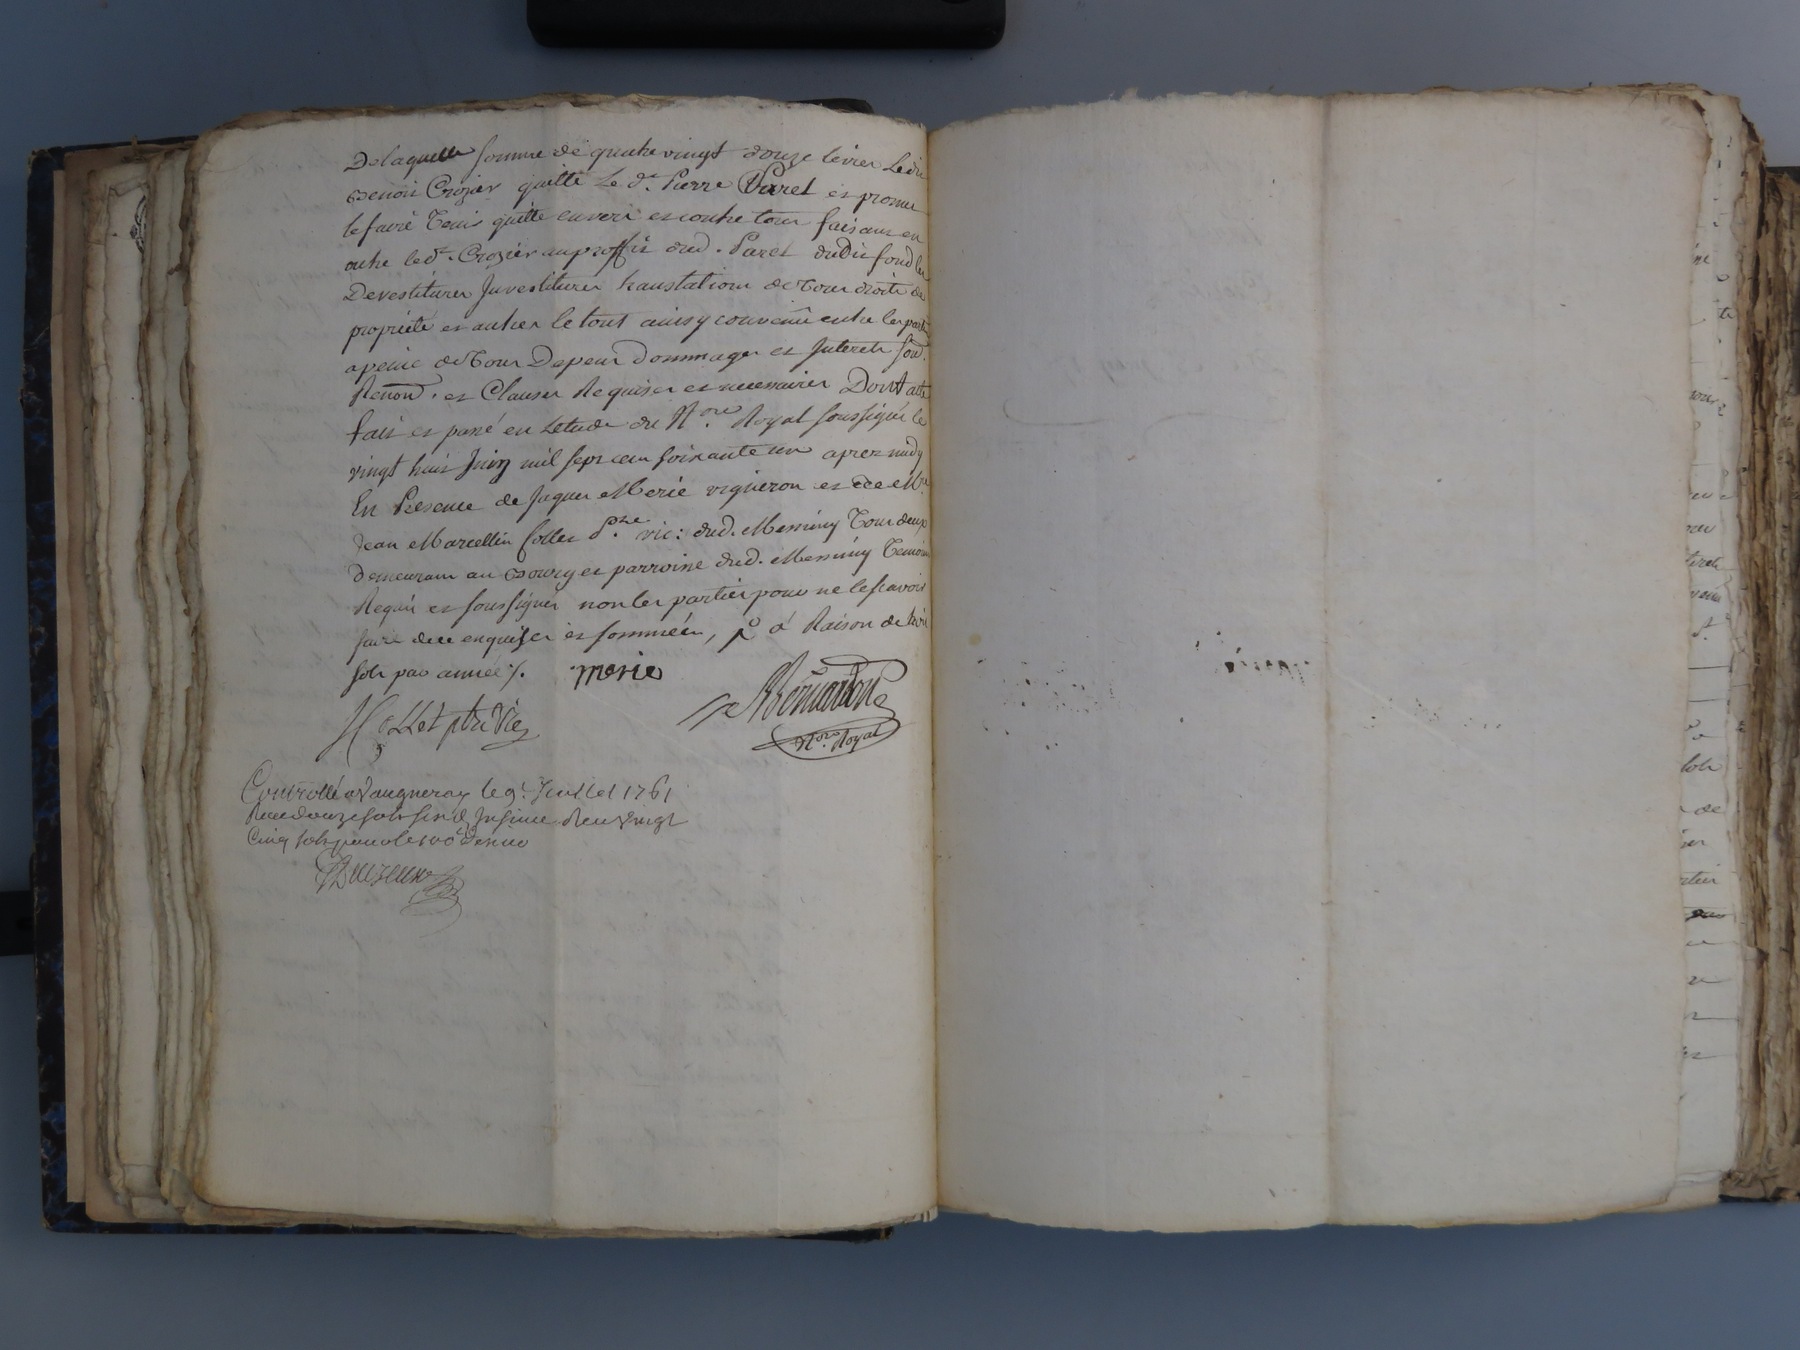 Delaquelle somme de quatre vingt douze livres Ledit
Benoit Crozier quitte Le dt. Pierre Paret et promet
le faire tenir quitte envers et contre tous faisant en
outre ledt. Crozier au proffit dud. Paret dudit fond les
Devestitures Investitures haustations de tous droits de
propriété et autres le tout ainsy convenu entre les parties
a peine de tous Depens Dommages et Interets soud.
Renond. et Clauses Requises et necessaires Dont acte
fait et passé en Letude du Nre. Royal soussigné le
vingt huit Juin mil sept cen soixante un aprez midy
En Presence de Jaques Merie vigneron et de Mre
Jean Marcellin Collet ptre. vic: dud. Messimy Tous deux
demeurant au Bourg et parroisse dud. Messimy Temoins
Requis et soussignés non les parties pour ne le scavoir
faire de ce enquises et sommées, à Raison de
sols par année /.
merie
Collet ptre vic
Bernardon
Nre. Royal
Controllé a Vaugneray le 9e. Juillet 1761
Reçu douze sols six d Insinué Reçu vingt
Cinq sols pour le 100e Denier